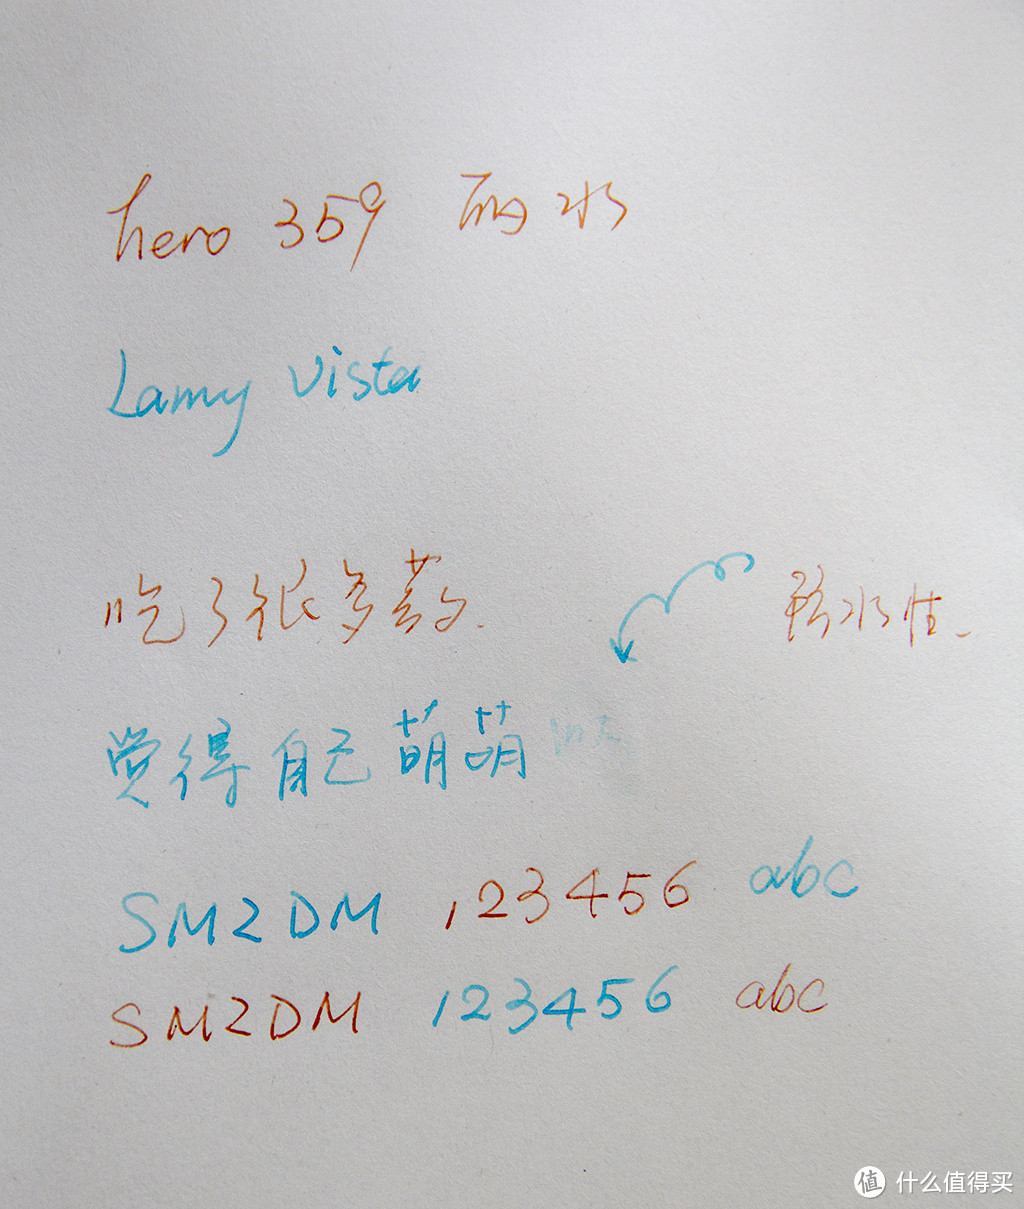 hero 359 水
Lamy Vista
吃了很多药.
水性
覚得自己萌萌
SM2DM 123456 abc
SM2DM 123456 abc
值 什么值得买